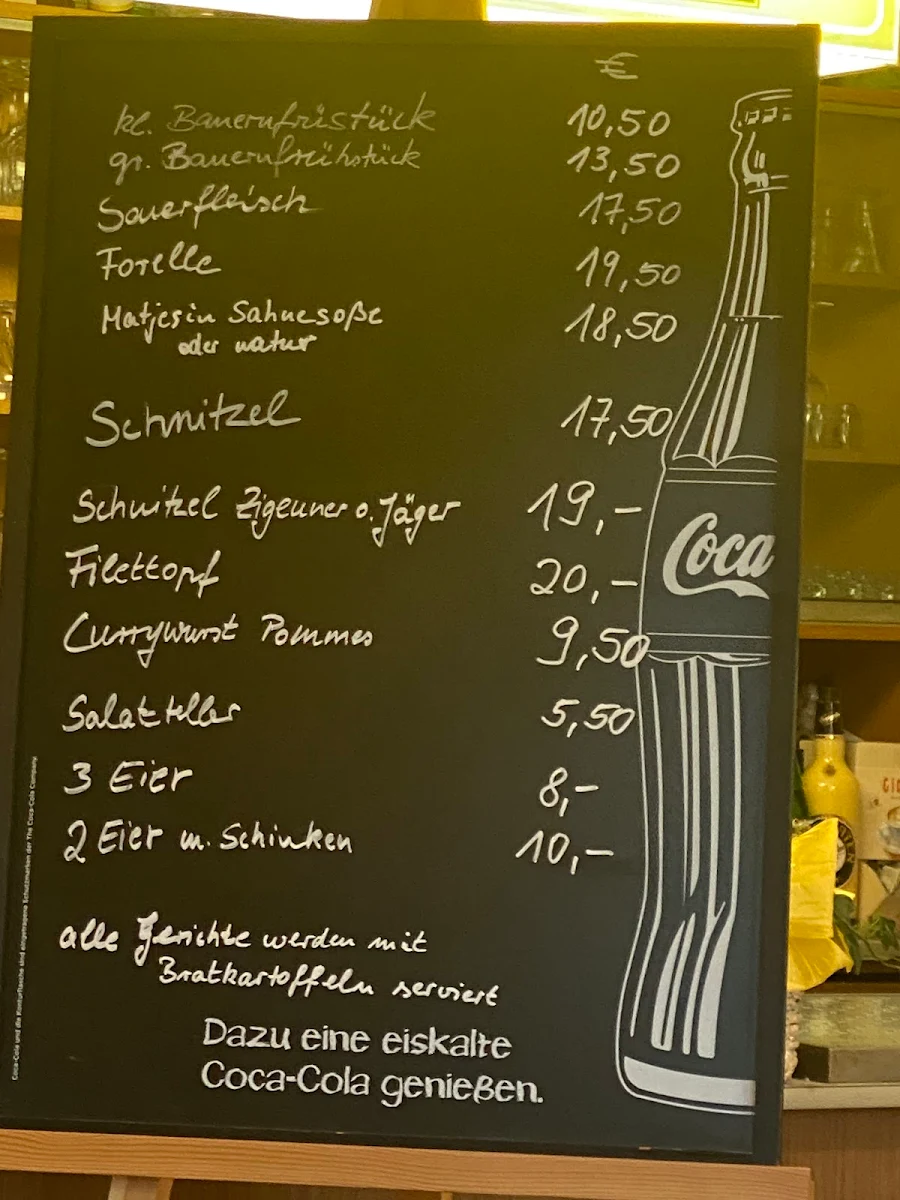 €
kl. Bauernfrüstück 10,50
gr. Bauernfrühstück 13,50
Sauerfleisch 17,50
Forelle 19,50
Matjes in Sahnesoße 18,50
oder natur
Schnitzel 17,50
Schnitzel Zigeuner o. Jäger 19,-
Filettopf 20,-
Currywurst Pommes 9,50
Salatteller 5,50
3 Eier 8,-
2 Eier m. Schinken 10,-
alle Gerichte werden mit
Bratkartoffeln serviert
Dazu eine eiskalte
Coca-Cola genießen.
Coca
Coca-Cola und die Konturflasche sind eingetragene Schutzmarken der The Coca-Cola Company